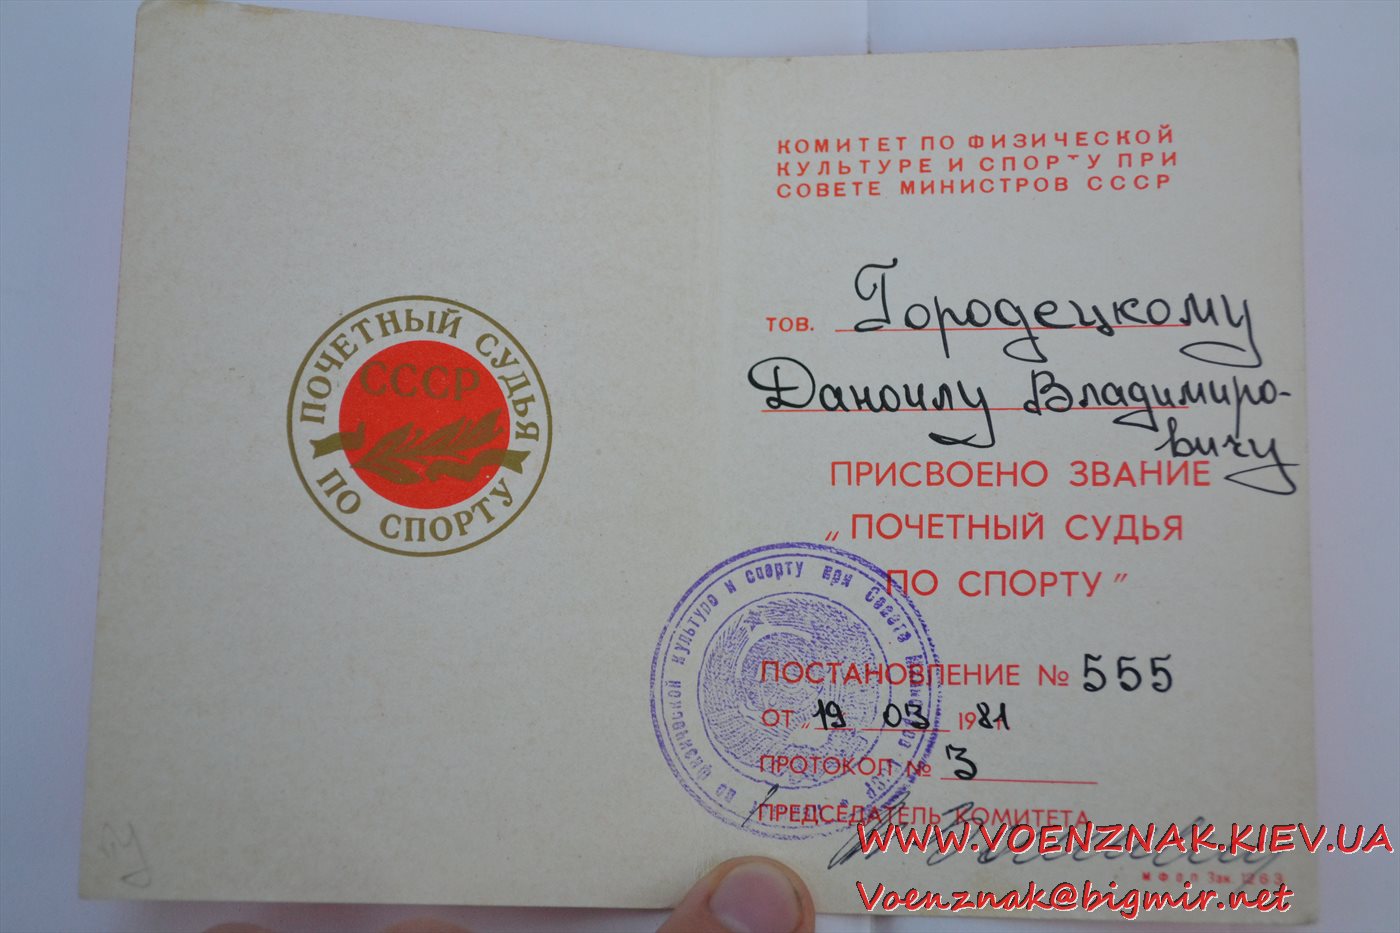 ПОЧЕТНЫЙ СУДЬЯ
СССР
ПО СПОРТУ
КОМИТЕТ ПО ФИЗИЧЕСКОЙ
КУЛЬТУРЕ И СПОРТУ ПРИ
СОВЕТЕ МИНИСТРОВ СССР
ТОВ. Городецкому
Даноилу Владимиро-
вичу
ПРИСВОЕНО ЗВАНИЕ
„ПОЧЕТНЫЙ СУДЬЯ
ПО СПОРТУ"
ПОСТАНОВЛЕНИЕ № 555
ОТ „19 03 1981
ПРОТОКОЛ № 3
ПРЕДСЕДАТЕЛЬ КОМИТЕТА
по физической культуре и спорту при Совете Министров СССР
МФОП Зак. 1263
WWW.VOENZNAK.KIEV.UA
Voenznak@bigmir.net